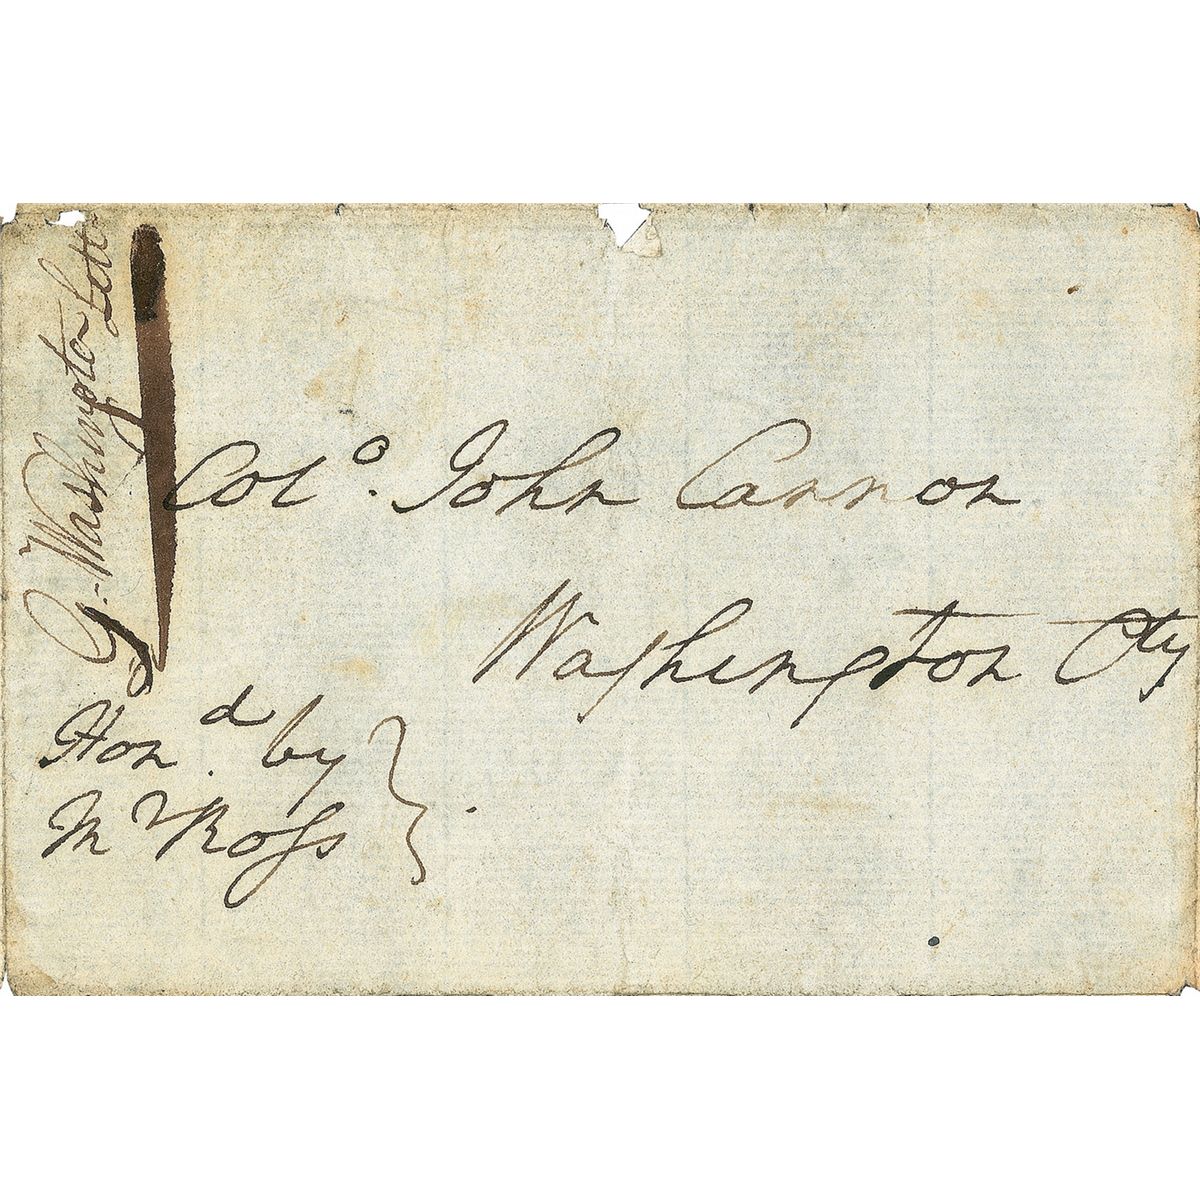 G. Washington Lett
Colº. John Cannon
Washington Cty
Hon.ᵈ by
Mʳ Ross